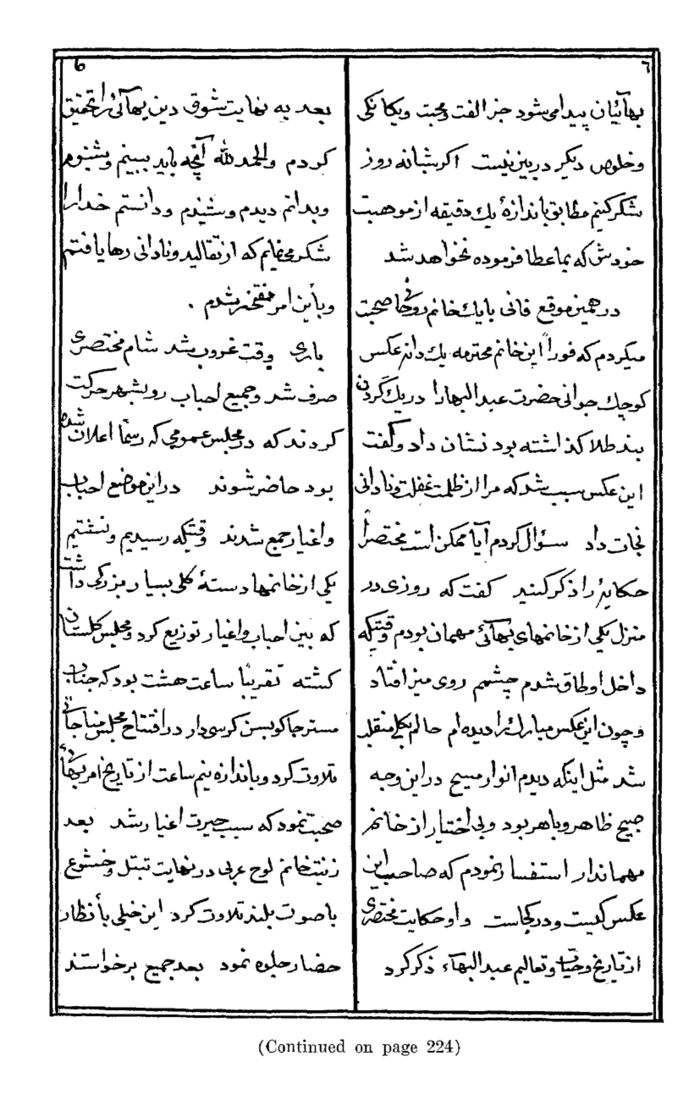 ٦
بهآئیان پیدا میشود جز الفت ومحبت ویگانگی
وخلوص دیگر در بین نیست اکر شبانه روز
شکر کنیم مطابق باندازهٔ یك دقیقه از موهبت
خودش که بما عطا فرموده نخواهد شد
در همین موقع فانی با یك خانم روحانی صحبت
میکردم که فوراً این خانم محترمه یك دانه عکس
کوچك جوانی حضرت عبدالبهارا در یك کردن
بند طلا کذاشته بود نشان داد وکفت
این عکس سبب شد که مرا از ظلمت غفلت ونادانی
نجات داد سؤال کردم آیا ممکن است مختصراً
حکایهٔ را ذکر کنید کفت که روزی در
منزل یکی از خانمهای بهآئی مهمان بودم وقتیکه
داخل اوطاق شدم چشمم روی میز افتاد
وچون این عکس مبارك را دیدم حالم بکلی منقلب
شد مثل اینکه دیدم انوار مسیح در این وجه
صبیح ظاهر وباهر بود وبی اختیار از خانم
مهماندار استفسار نمودم که صاحب این
عکس کیست ودر کجاست واو حکایت مختصری
از تاریخ وحیات وتعالیم عبدالبهآء ذکر کرد
6
بعد به نهایت شوق دین بهآئی را تحقیق
کردم والحمد لله آنچه باید ببینم وبشنوم
وبدانم دیدم وشنیدم ودانستم خدارا
شکر مینمایم که از تقالید ونادانی رها یافتم
وباین امر مفتخر شدم .
باری وقت غروب شد شام مختصری
صرف شد وجمیع احباب رو بشهر حرکت
کردند که در مجلس عمومی که رسمًا اعلان شده
بود حاضر شوند در این موضع احباب
واغیار جمع شدند وقتیکه رسیدیم ونشستیم
یکی از خانمها دستهٔ کلی بسیار بزرکی داشت
که بین احباب واغیار توزیع کرد ومجلس کلستان
کشته تقریبًا ساعت هشت بود که جناب
مستر جاکوبسن کرسی دار در افتتاح مجلس مناجاتی
تلاوت کرد وباندازه نیم ساعت از تاریخ امر بهآئی
صحبت نمود که سبب حیرت اغیار شد بعد
زینت خانم لوح عربی در نهایت تبتل وخشوع
با صوت بلند تلاوت کرد این خیلی بأنظار
حضار جلوه نمود بعد جمیع برخواستند
(Continued on page 224)